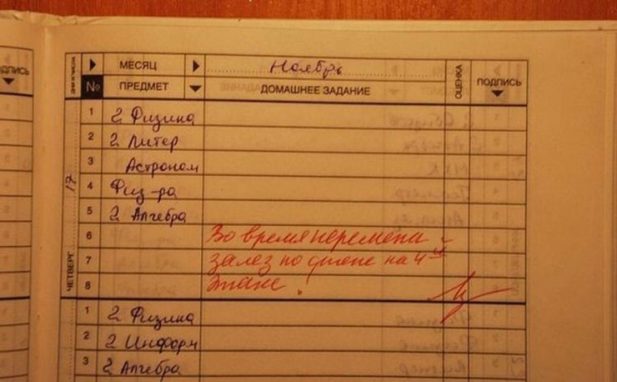 МЕСЯЦ Ноябрь ОЦЕНКА
№ ПРЕДМЕТ ДОМАШНЕЕ ЗАДАНИЕ ПОДПИСЬ
1 2 Физика
2 2 Литер
3 Астроном
4 Физ-ра
5 2 Алгебра
6 Во время перемена
7 залез по стене на 4-й
8 этаж!
ЧЕТВЕРГ 17
1 2 Физика
2 2 Информ
3 2 Алгебра